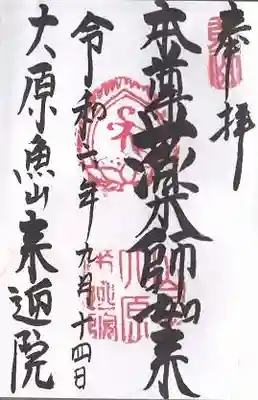 奉拝
本尊薬師如来
令和六年九月十四日
大原魚山来迎院